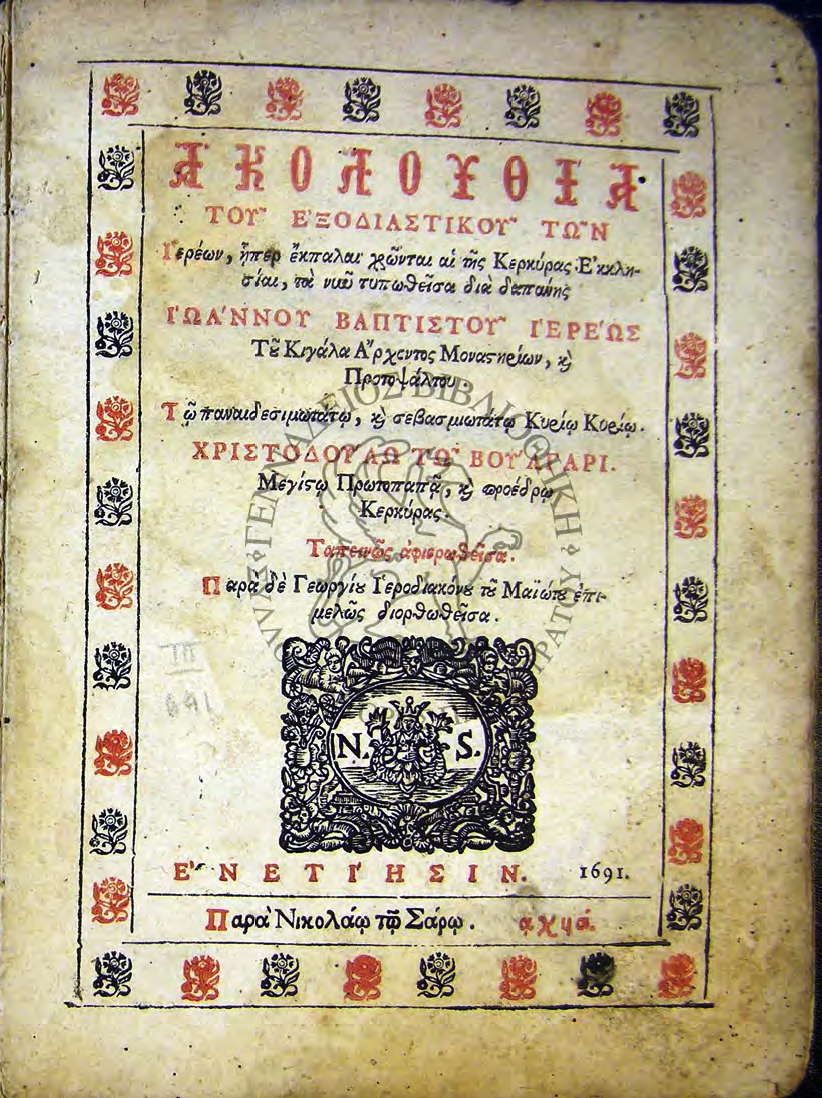 ΑΚΟΛΟΥΘΙΑ
ΤΟΥ͂ ΕʼΞΟΔΙΑΣΤΙΚΟΥ͂ ΤΩ͂Ν
Ἱερέων, ἧπερ ἔκπαλαι χρῶνται αἱ τῆς Κερκύρας Ἐκκλη-
σίαι, τὰ νῦν τυπωθεῖσα διὰ δαπάνης
ἸΩΆΝΝΟΥ ΒΑΠΤΙΣΤΟΥ͂ ἹΕΡΈΩΣ
Τοῦ Κιγάλα Ἄρχοντος Μοναστηρίων, ϗ
Πρωτοψάλτου.
Τῷ παναιδεσιμωτάτῳ, ϗ σεβασμιωτάτῳ Κυρίῳ Κυρίῳ.
ΧΡΙΣΤΟΔΟΎΛΩ ΤΩ͂ ΒΟΥΛΓΑΡΙ.
Μεγίστῳ Πρωτοπαπᾷ, ϗ προέδρῳ
Κερκύρας.
Ταπεινῶς ἀφιερωθεῖσα.
Παρὰ δὲ Γεωργίου Ἱεροδιακόνου τοῦ Μαϊώτου ἐπι-
μελῶς διορθωθεῖσα.
ΓΕΝΝΑΔΕΙΟΣ ΒΙΒΛΙΟΘΗΚΗ
III
691
N. S.
ἘΝΕΤΊΗΣΙΝ. 1691.
Παρὰ Νικολάῳ τῷ Σάρῳ. αχϟά.